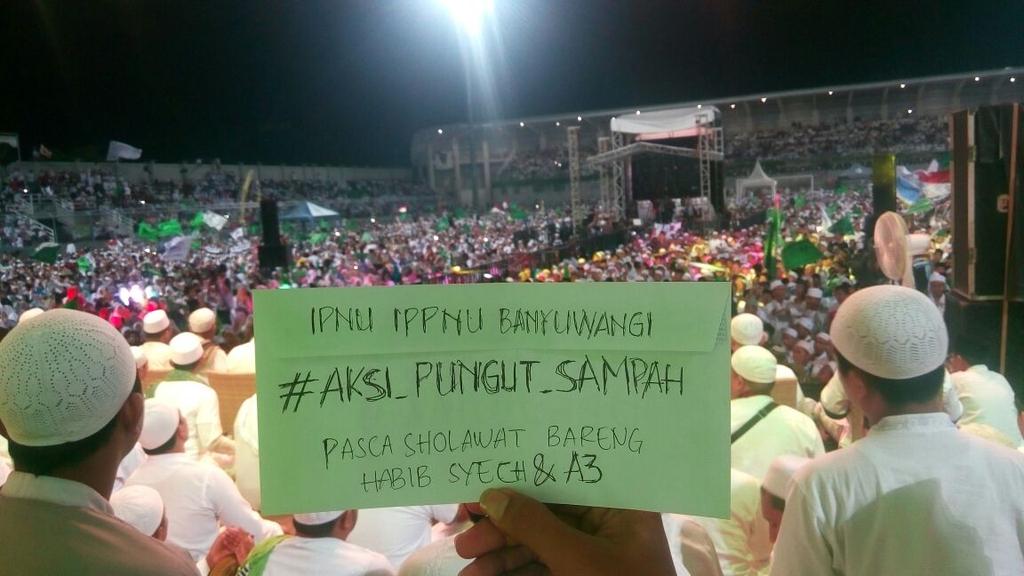 IPNU IPPNU BANYUWANGI
#AKSI_PUNGUT_SAMPAH
PASCA SHOLAWAT BARENG
HABIB SYECH & A3